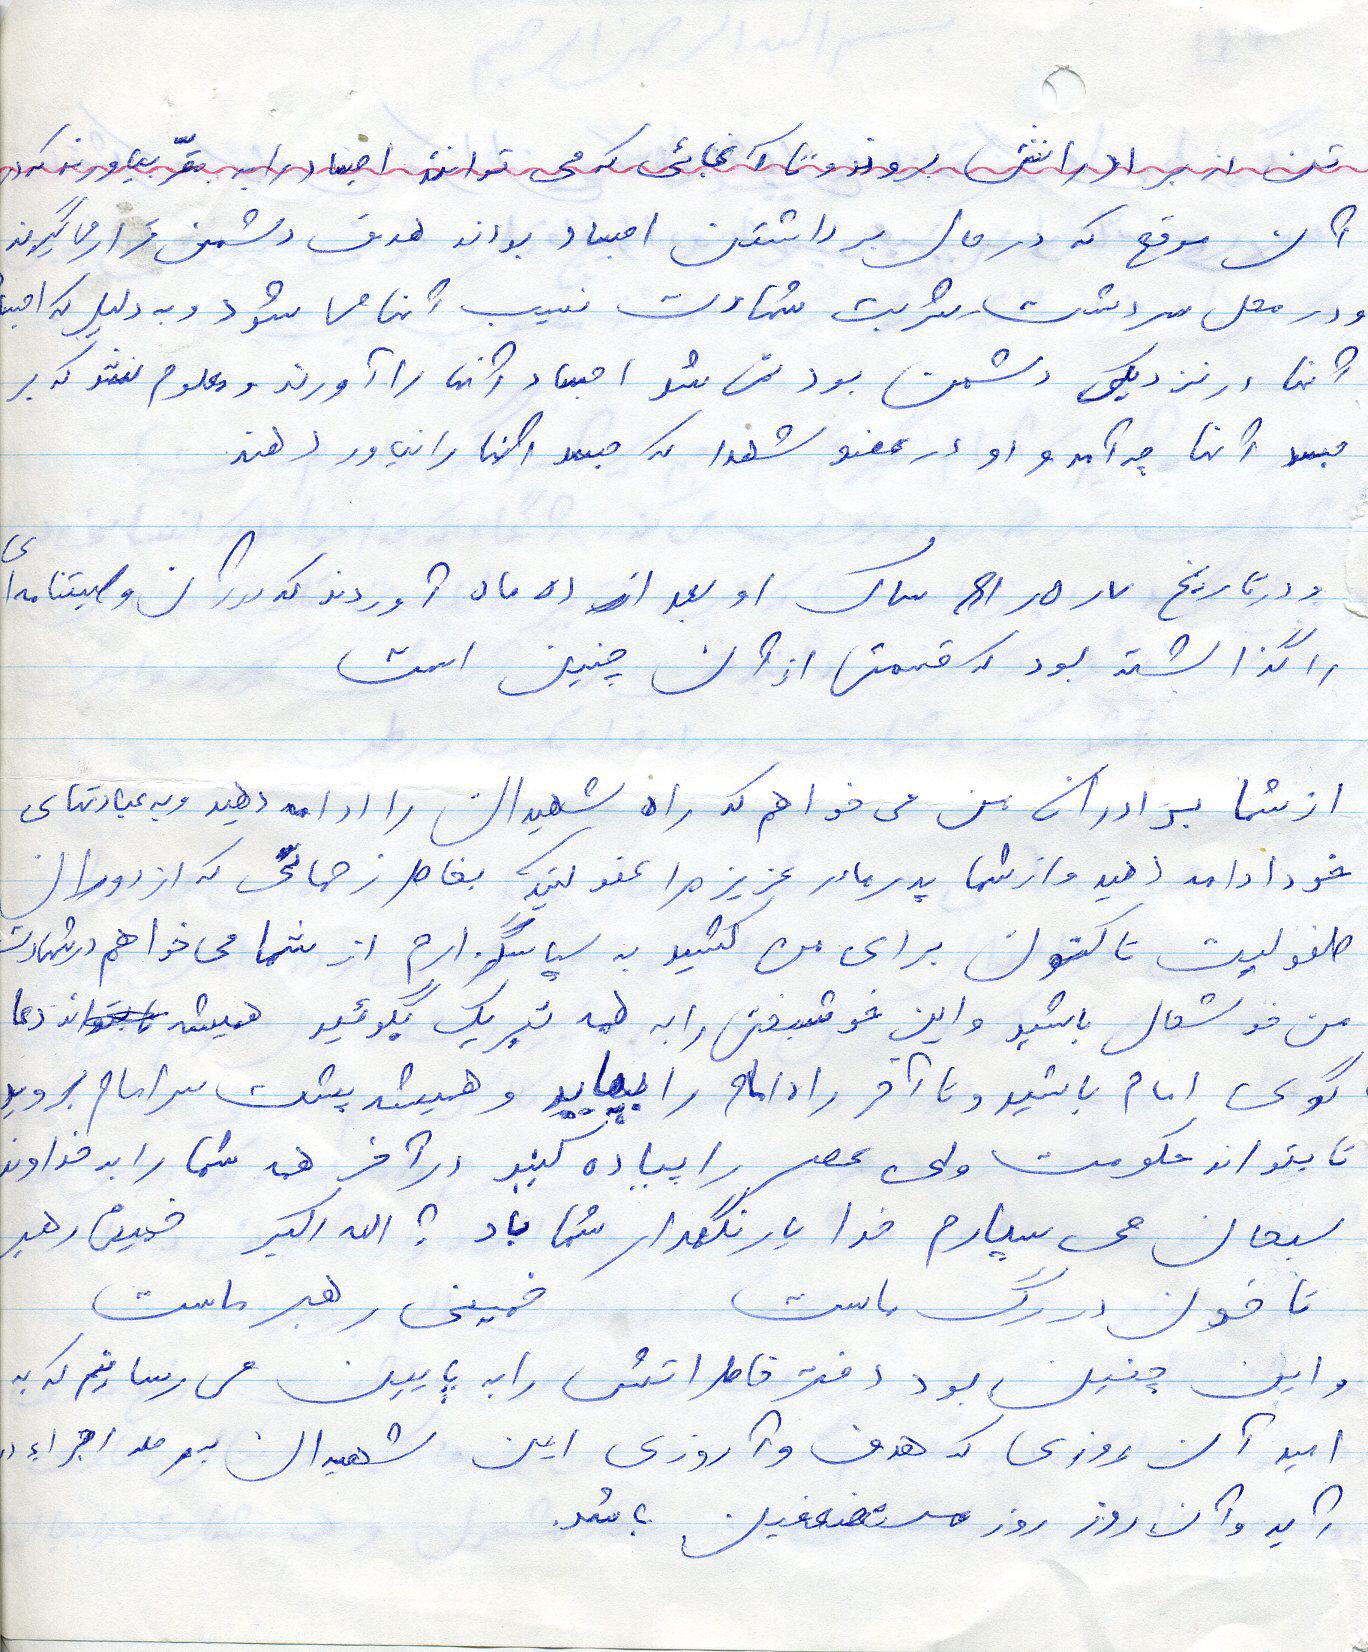 تن از برادرانش بروند و تا آنجائی که می توانند اجساد را به مقّر بیاورند که در
آن موقع که در حال برداشتن اجساد بودند هدف دشمن قرار می گیرند
و در محل سردشت شربت شهادت نصیب آنها می شود و به دلیل که اجساد
آنها در نزدیکی دشمن بود نمی شد اجساد آنها را آورند و معلوم نشد که بر
جسد آنها چه آمد و او در عضو شهدا که جسد آنها را نیاوردهند.
و در تاریخ ساک او بعد از ده ماه آوردند که در آن وصیتنامه ای
را گذاشته بود که قسمتی از آن چنین است
از شما برادران من می خواهم که راه شهیدان را ادامه دهید و به عبادتهای
خود ادامه دهید و از شما پدر مادر عزیز مرا عفو کنید بخاطر زحمتائی که از دوران
طفولیت تاکنون برای من کشیدید سپاسگزارم از شما می خواهم در شهادت
من خوشحال باشید و این خوشبختی را به همه تبریک بگوئید همیشه دعا
گوی امام باشید و تا آخر راه امام را بپیمایید و همیشه پشت سر امام بروید
تا بتواند حکومت ولی عصر را پیاده کنید در آخر همه شما را به خداوند
سبحان می سپارم خدا یار نگهدار شما باد الله اکبر خمینی رهبر
تا خون در رگ ماست خمینی رهبر ماست
و این چنین بود دفتر خاطراتش را به پایین می رسانیم که به
امید آن روزی که هدف و آرزوی این شهیدان به مرحله اجراء در
آید و آن روز روز مستضعفین باشد.